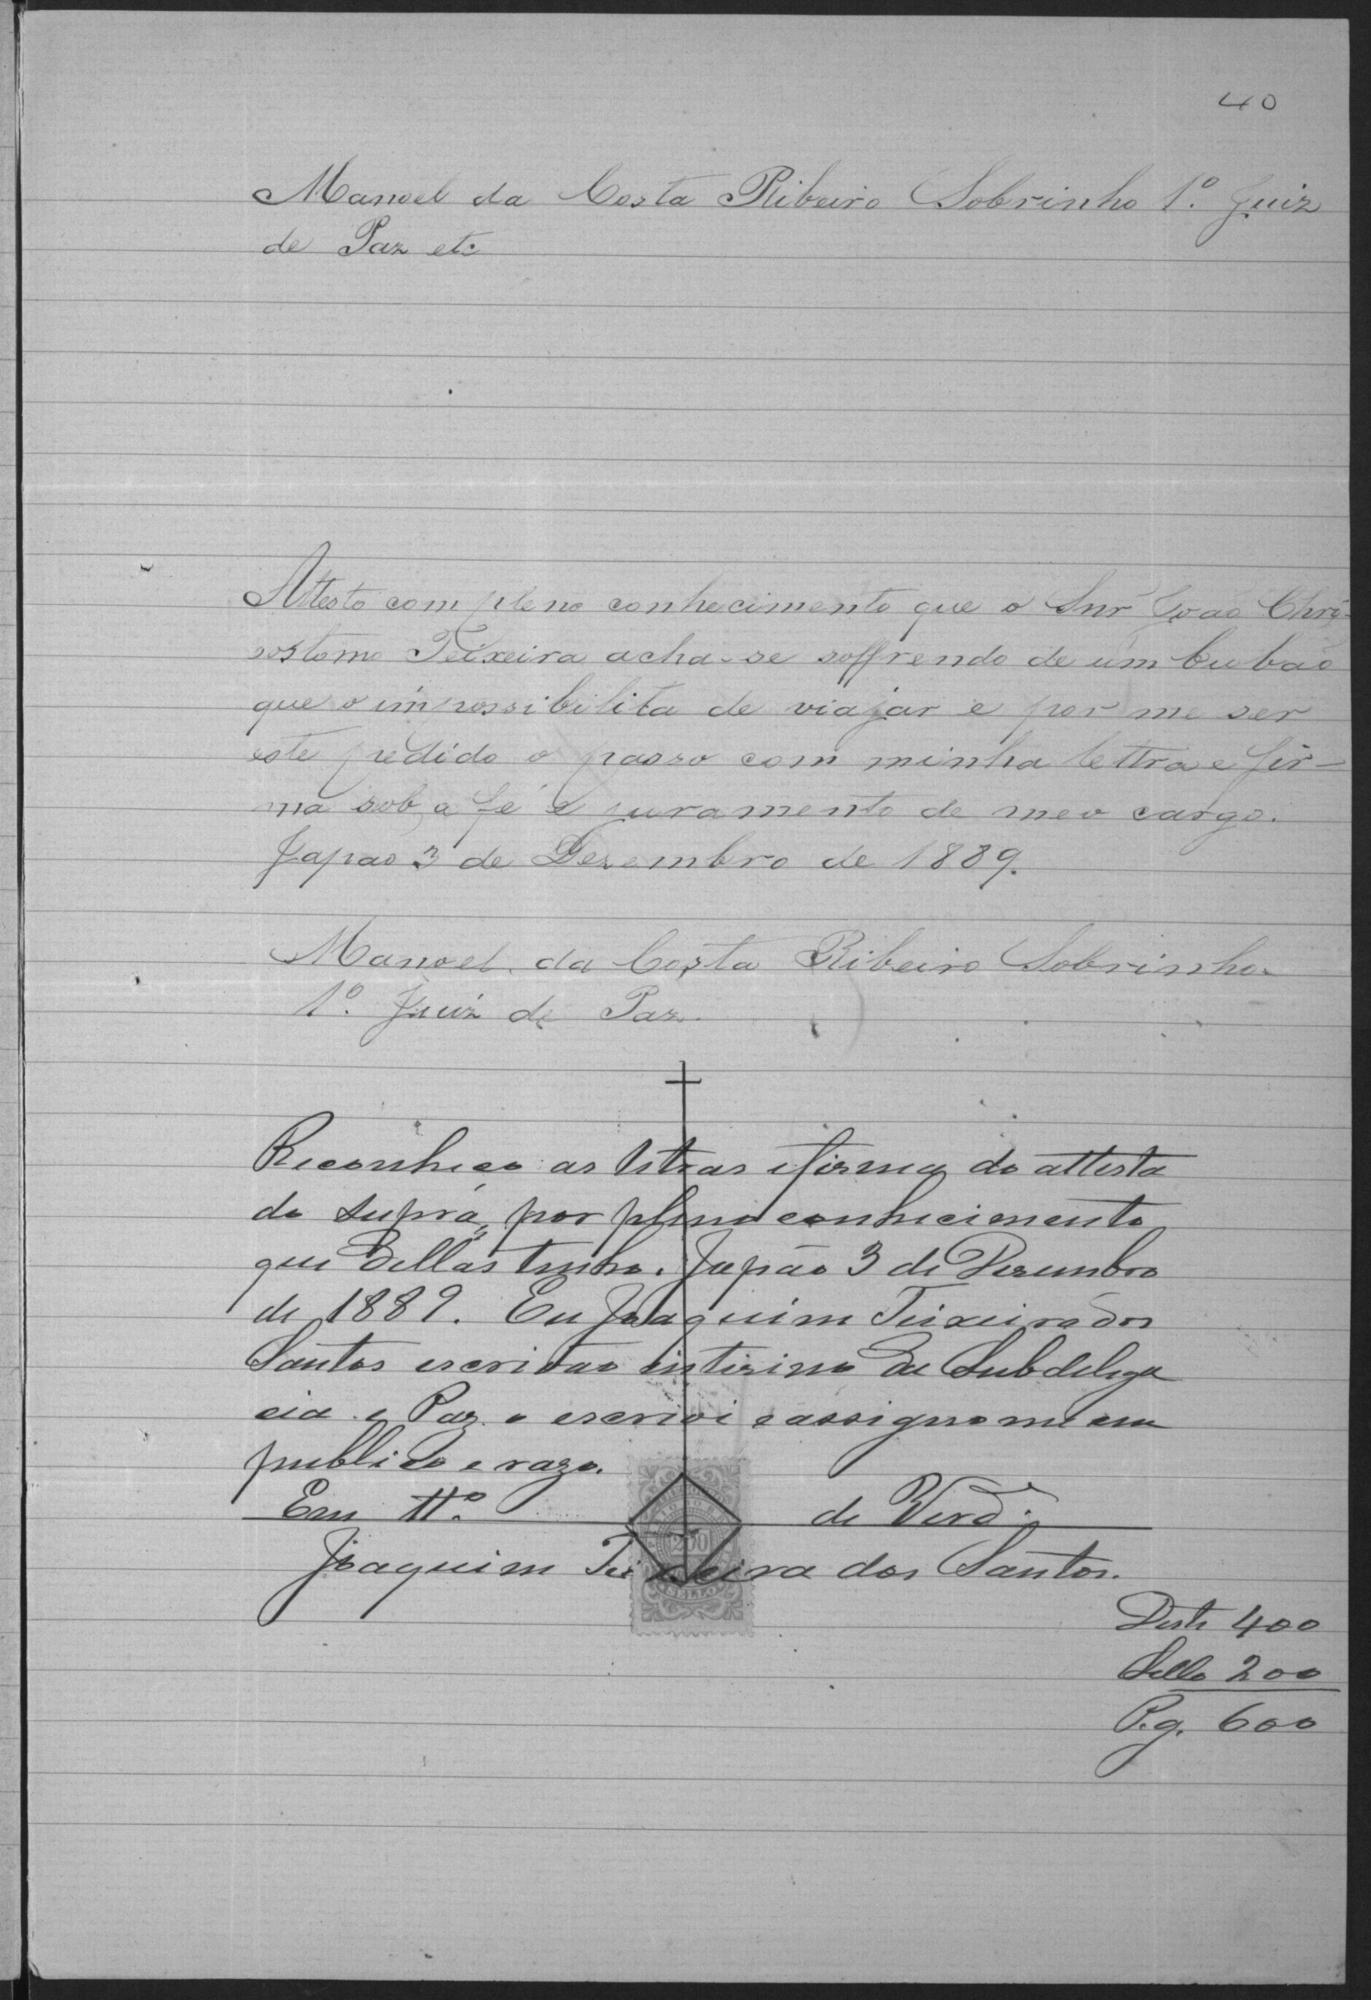 40
Manoel da Costa Ribeiro Sobrinho 1º. Juiz
de Paz etc
Attesto com pleno conhecimento que o Snr João Chry-
sostomo Teixeira acha-se soffrendo de um bubão
que o impossibilita de viajar e por me ser
este pedido o passo com minha lettra e fir-
ma sob a fé e juramento de meo cargo.
Japão 3 de Dezembro de 1889.
Manoel da Costa Ribeiro Sobrinho.
1º. Juiz de Paz.
Reconheço as letras e firma do attesta
do supra, por pleno conhecimento
que dellas tenho. Japão 3 de Dezembro
de 1889. Eu Joaquim Teixeira dos
Santos escrivão interino da Subdelega
cia e Paz o escrivi e assigno me em
publico e razo.
Em ttº. de Verd.
Joaquim Teixeira dos Santos.
200
Deste 400
Sello 200
P.g. 600